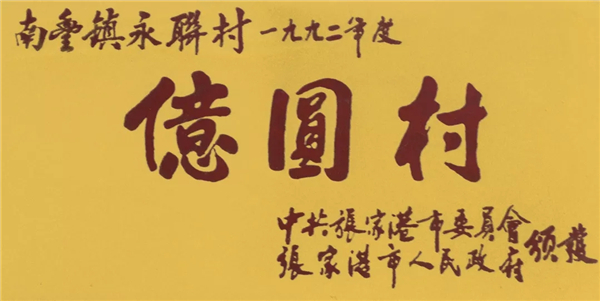 南豐鎮永聯村一九九二年度
億圓村
中共張家港市委員會
張家港市人民政府
頒獲